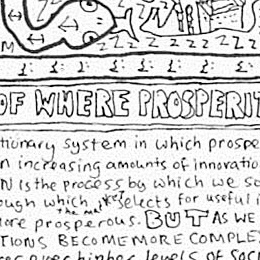 M Z Z Z Z Z Z Z Z Z
OF WHERE PROSPERIT
tionary system in which prospe
n increasing amounts of innovatio
N is the process by which we so
ough which selects for useful i
the mar ket
ore prosperous. BUT AS WE
TIONS BECOME MORE COMPLE
higher levels of soci